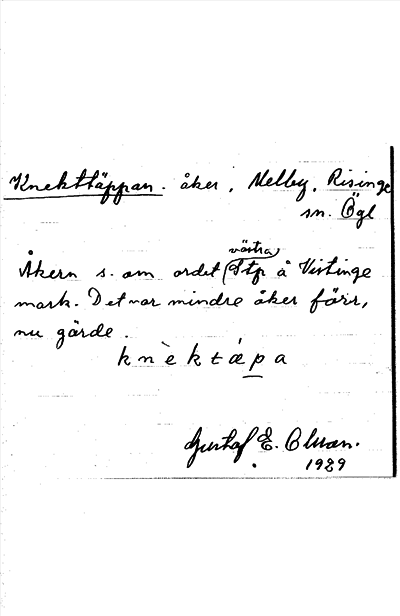 Knekttäppan. åker, Melby, Risinge
sn. Ögl
västra
Åkern s. om ordet Stp å Vistinge
mark. Det var mindre åker förr,
nu gärde.
k n è k t ά p a
Gustaf E. Olsson.
1929